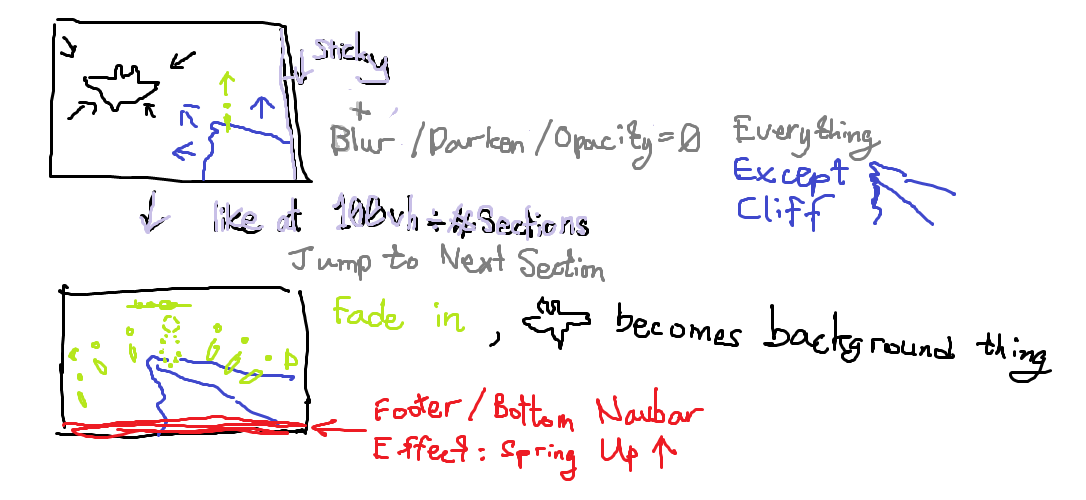 Sticky
+
Blur / Darken / Opacity = 0 Everything
Except
Cliff
like at 100vh ÷ # Sections
Jump to Next Section
Fade in, becomes background thing
Footer / Bottom Navbar
Effect: Spring Up ↑